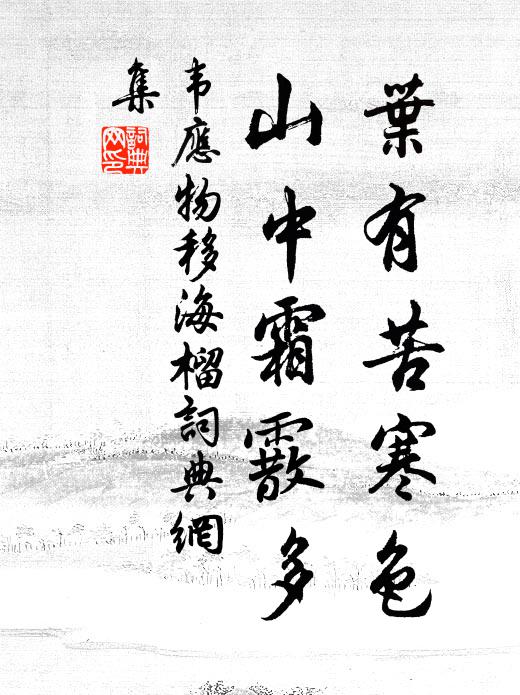 葉有苦寒色
山中霜霰多
韦應物移海榴詞典網
集
詞典网印